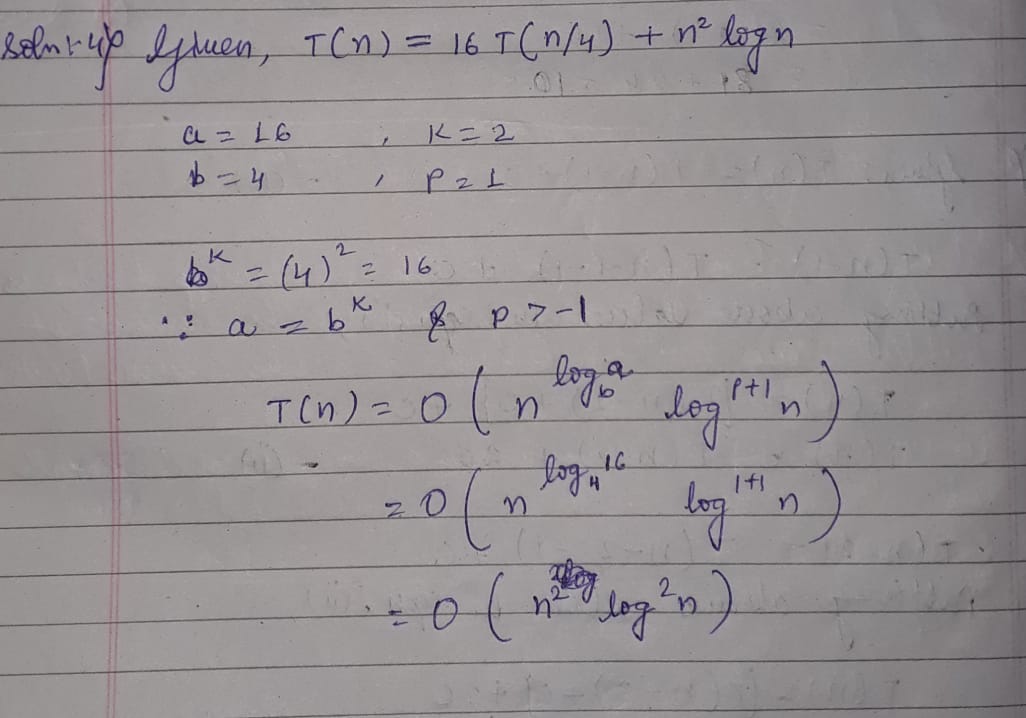 Soln:- 4) Given, T(n) = 16 T(n/4) + n² log n
a = 16 , K = 2
b = 4 , P = 1
b^K = (4)² = 16
∵ a = b^K & p > -1
T(n) = O ( n^{log_b a} log^{P+1} n )
= O ( n^{log_4 16} log^{1+1} n )
= O ( n² log² n )